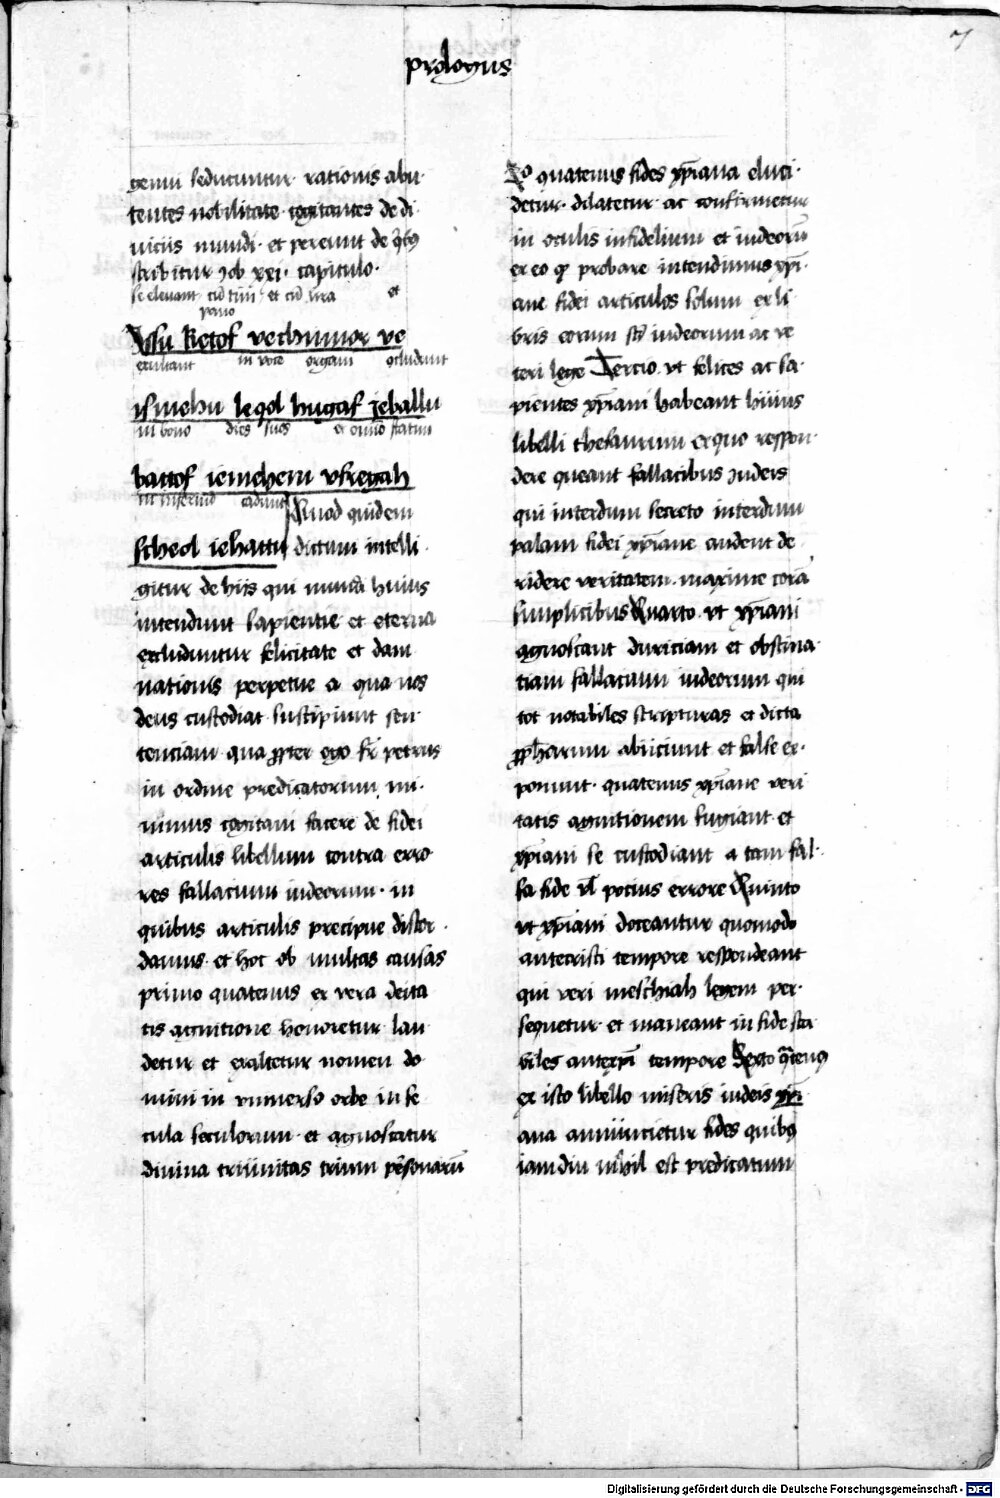 prologus
7
genui seducuntur rationis abu·
tentes nobilitate cogitantes de di
viciis mundi· et pereunt de q̄bꝫ
scribitur Job xxi· capitulo·
se elevant cū timpano et cū lira et
yssu Ketof vechinnor ve
exultant in voce organi ocludunt
ismehu leqol hugaf jeballu
in bono dies suos et omnē statum
battof iemehem vfregah
in infernū cadunt Quod quidem
scheol iehattu dictum intelli·
gitur de hijs qui mundā huius
intendunt sapientie et eterna
excluduntur felicitate et dam
nationis perpetue a qua nos
deus custodiat suscipiunt sen·
tenciam qua ꝓpter ego fr̄ petrus
in ordine predicatorum mi·
nimus cogitavi facere de fidei
articulis libellum contra erro
res fallacium iudeorum· in
quibus articulis precipue discor·
damus· et hoc ob multas causas
primo quatenus ex vera deita
tis agnitione honoretur lau
detur et exaltetur nomen do
mini in vniuerso orbe in se
cula seculorum· et agnoscatur
diuina trinitas trium ꝑsonarū
2o quatenus fides xp̄iana eluci·
detur· dilatetur· ac confirmetur
in oculis infidelium et iudeorū
ex eo qꝫ probare intendimus xp̄i·
ane fidei articulos solum ex li
bris eorum scꝫ iudeorum ac ve
teri lege Tercio vt felices ac sa·
pientes xp̄iani habeant huius
libelli thesaurum ex quo respon·
dere queant fallacibus Judeis
qui interdum secreto interdum
palam fidei xp̄iane audent de
ridere veritatem· maxime corā
simplicibus Quarto vt xp̄iani
agnoscant duriciam et obstina·
tiam fallacium iudeorum qui
tot notabiles scripturas et dicta
ꝓphetarum abiiciunt et false ex·
ponunt· quatenus xp̄iane veri
tatis agnitionem fugiant· et
xp̄iani se custodiant a tam fal·
sa fide vl̄ pocius errore Quinto
vt xp̄iani doceantur quomodo
antecristi tempore respondeant
qui veri meschiah legem per·
sequetur· et maneant in fide sta
biles antexp̄i tempore Sexto q̄tenꝰ
ex isto libello miseris iudeis xp̄i
ana annuncietur fides quibꝫ
iam diu nihil est predicatum
Digitalisierung gefördert durch die Deutsche Forschungsgemeinschaft - DFG